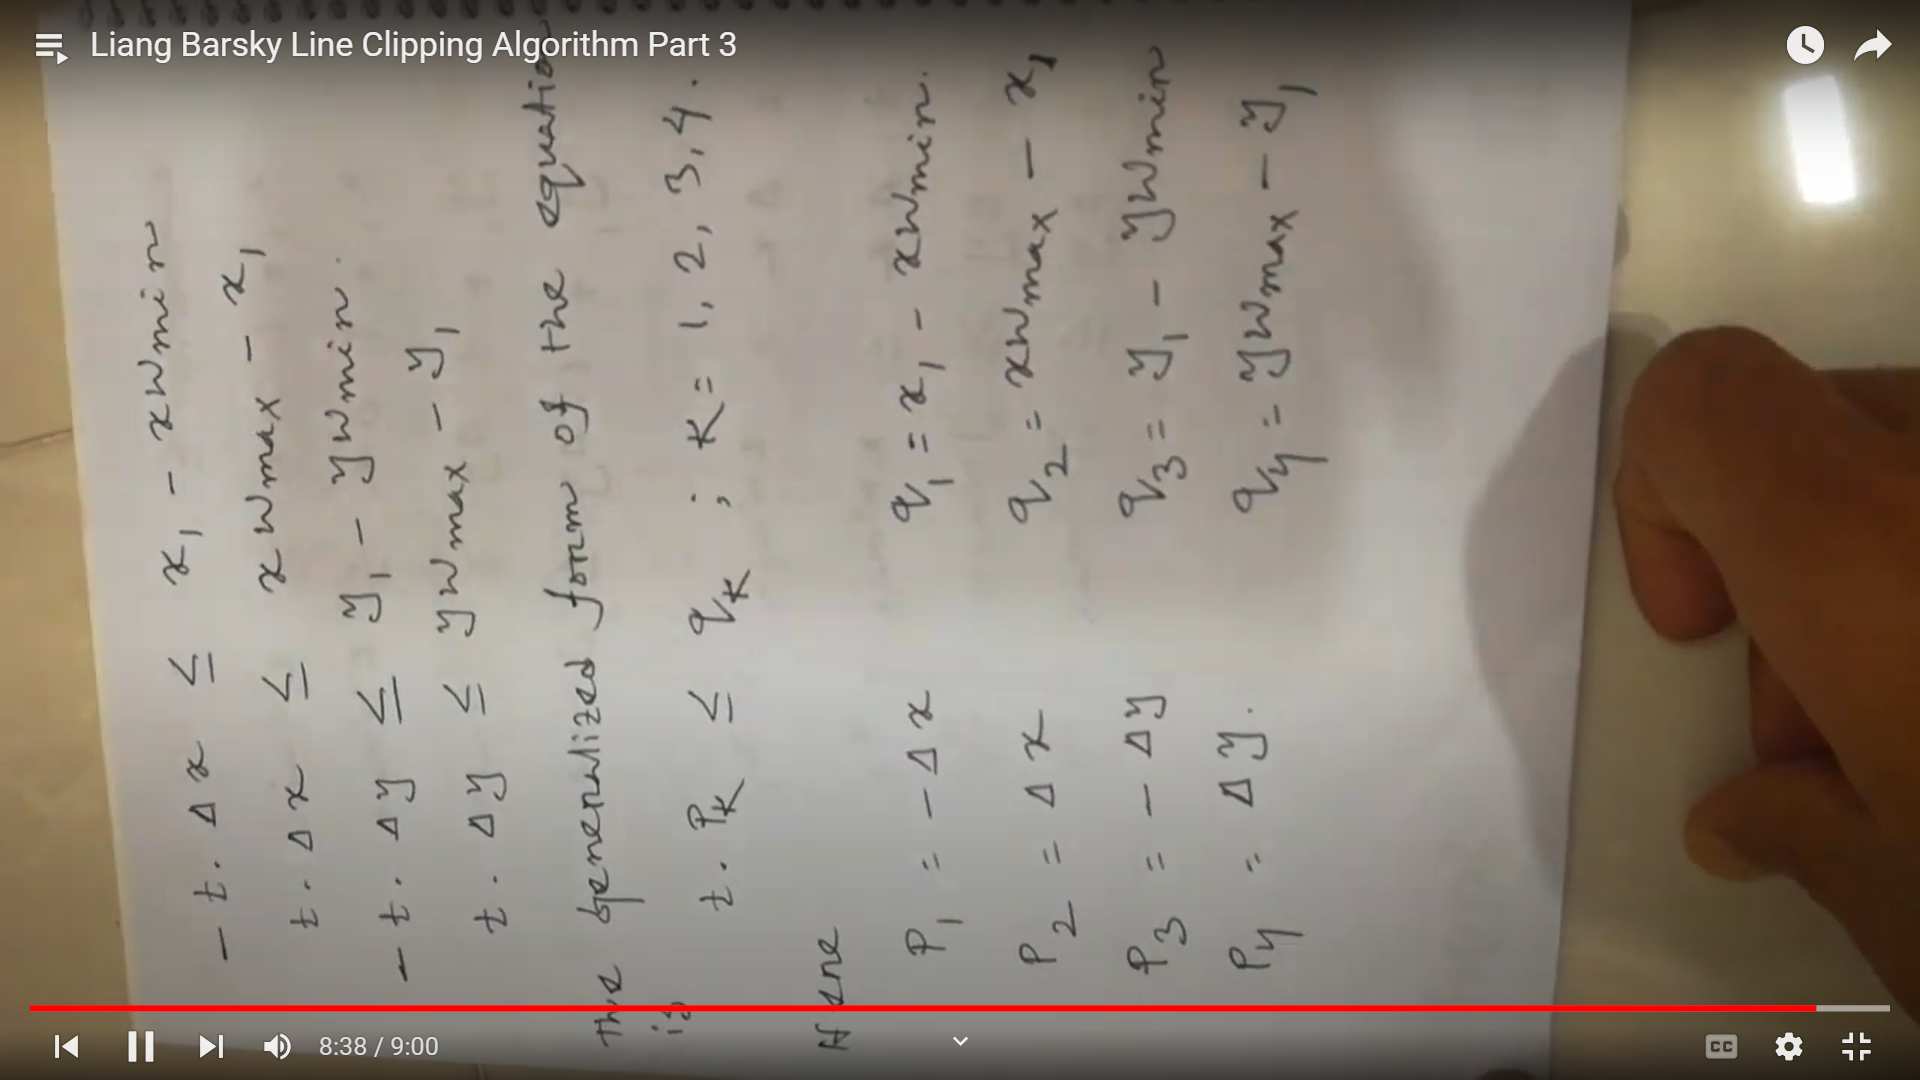 Liang Barsky Line Clipping Algorithm Part 3
- t. Δx ≤ x₁ - xwmin
t. Δx ≤ xwmax - x₁
- t. Δy ≤ y₁ - ywmin.
t. Δy ≤ ywmax - y₁
the generalized form of the equation
is
t. PK ≤ qK ; K = 1, 2, 3, 4.
Here
P₁ = - Δx q₁ = x₁ - xwmin.
P₂ = Δx q₂ = xwmax - x₁
P₃ = - Δy q₃ = y₁ - ywmin
P₄ = Δy. q₄ = ywmax - y₁
8:38 / 9:00
CC